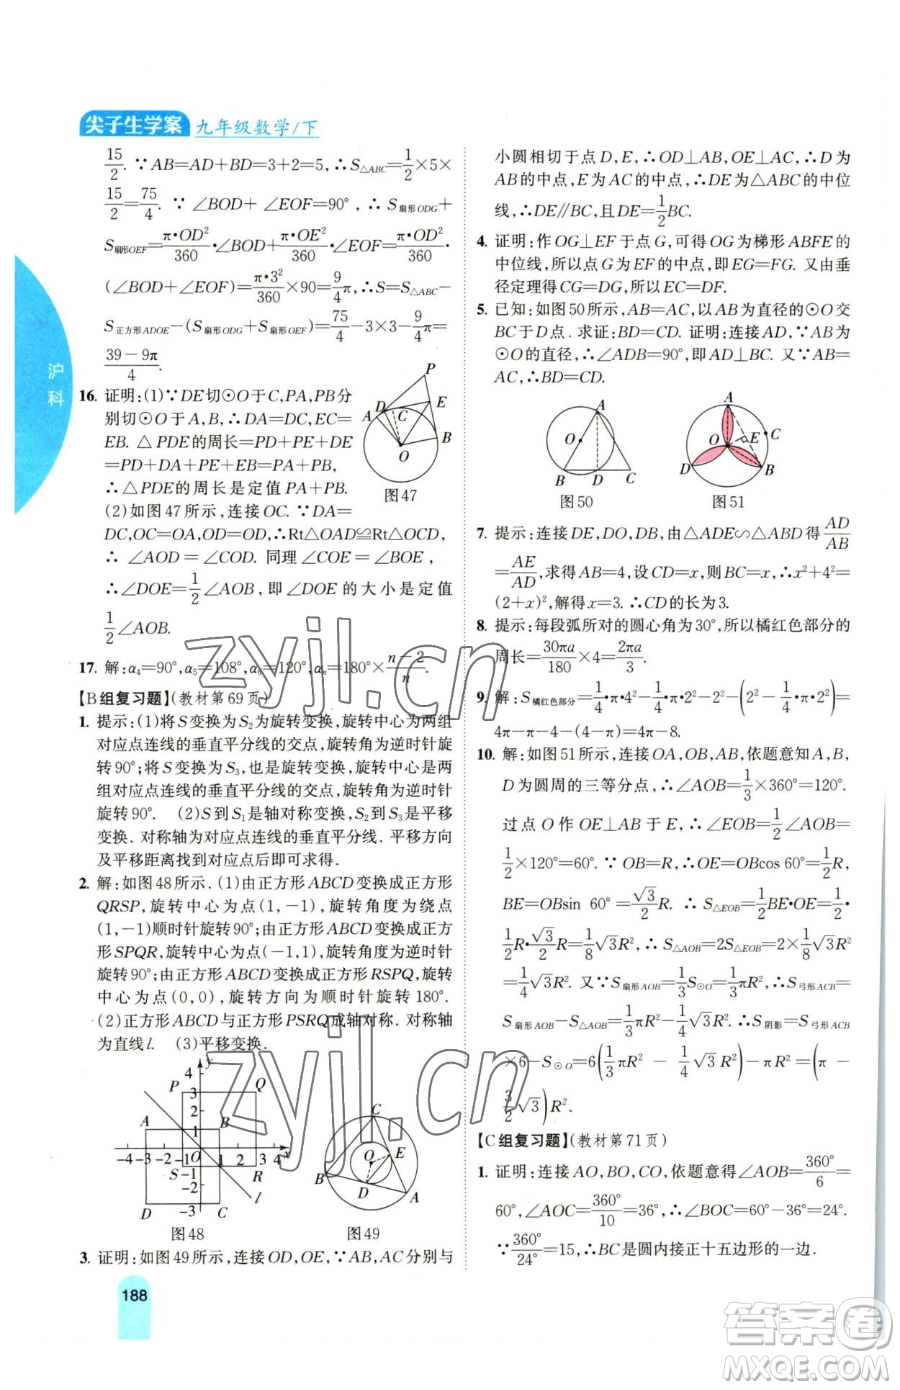 尖子生学案 九年级数学/下
15/2. ∵AB=AD+BD=3+2=5, ∴S△ABC=1/2×5×
15/2=75/4. ∵∠BOD+∠EOF=90°, ∴S扇形ODG+
S扇形OEF=π•OD²/360•∠BOD+π•OE²/360•∠EOF=π•OD²/360•
(∠BOD+∠EOF)=π•3²/360×90=9/4π, ∴S△ABC-
S正方形ADOE-(S扇形ODG+S扇形OEF)=75/4-3×3-9/4π=
39-9π/4.
16. 证明:(1)∵DE切⊙O于点C,PA,PB分
别切⊙O于A,B,∴DA=DC,EC=
EB. △PDE的周长=PD+PE+DE
=PD+DA+PE+EB=PA+PB,
∴△PDE的周长是定值PA+PB.
(2)如图47所示,连接OC. ∵DA=
DC,OC=OA,OD=OD,∴Rt△OAD≌Rt△OCD,
∴∠AOD=∠COD. 同理∠COE=∠BOE,
∴∠DOE=1/2∠AOB,即∠DOE的大小是定值
1/2∠AOB.
P
D
C
E
A
B
O
图47
17. 解:α₄=90°,α₅=108°,α₆=120°,αₙ=180°×n-2/n.
【B组复习题】(教材第69页)
1. 提示:(1)将S变换为S₂为旋转变换,旋转中心为两组
对应点连线的垂直平分线的交点,旋转角为逆时针旋
转90°;将S变换为S₃,也是旋转变换,旋转中心是两
组对应点连线的垂直平分线的交点,旋转角为顺时针
旋转90°. (2)S到S₁是轴对称变换,S₂到S₃是平移
变换. 对称轴为对应点连线的垂直平分线. 平移方向
及平移距离找到对应点后即可求得.
2. 解:如图48所示. (1)由正方形ABCD变换成正方形
QRSP,旋转中心为点(1,-1),旋转角度为绕点
(1,-1)顺时针旋转90°;由正方形ABCD变换成正方
形SPQR,旋转中心为点(-1,1),旋转角度为逆时针
旋转90°;由正方形ABCD变换成正方形RSPQ,旋转
中心为点(0,0),旋转方向为顺时针旋转180°.
(2)正方形ABCD与正方形PSRQ成轴对称. 对称轴
为直线l. (3)平移变换.
4
P
3
Q
2
A
1
B
-4 -3 -2 -1
1 2 3 4 x
S
-1
R
-2
l
D
-3
C
图48
C
O
E
B
D
A
图49
3. 证明:如图49所示,连接OD,OE,∵AB,AC分别与
小圆相切于点D,E,∴OD⊥AB,OE⊥AC,∴D为
AB的中点,E为AC的中点,∴DE为△ABC的中位
线,∴DE∥BC,且DE=1/2BC.
4. 证明:作OG⊥EF于点G,可得OG为梯形ABFE的
中位线,所以G为EF的中点,即EG=FG. 又由垂
径定理得CG=DG,所以EC=DF.
5. 已知:如图50所示,AB=AC,以AB为直径的⊙O交
BC于D点. 求证:BD=CD. 证明:连接AD,∵AB为
⊙O的直径,∴∠ADB=90°,即AD⊥BC. 又∵AB=
AC,∴BD=CD.
A
O
B
D
C
图50
A
C
O
E
D
B
图51
7. 提示:连接DE,DO,DB,由△ADE∽△ABD得AD/AB
=AE/AD,求得AB=4. 设CD=BC=x,∴x²+4²=
(2+x)²,解得x=3. ∴CD的长为3.
8. 提示:每段弧所对的圆心角为30°,所以橘红色部分的
周长=30πa/180×4=2πa/3.
9. 解:S橘红色部分=1/4•π•4²-1/4•π•2²-2²-(1/4•π•2²)=
4π-π-4-(4-π)=4π-8.
10. 解:如图51所示,连接OA,OB,AB,依题意知A,B,
D为圆周的三等分点,∴∠AOB=1/3×360°=120°.
过点O作OE⊥AB于E,∴∠EOB=1/2∠AOB=
1/2×120°=60°. ∵OB=R,∴OE=OBcos 60°=1/2R,
BE=OBsin 60°=√3/2R. ∴S△EOB=1/2BE•OE=1/2•
1/2R•√3/2R=1/8√3R². ∴S△AOB=2S△EOB=2×1/8√3R²
=1/4√3R². 又∵S扇形AOB=1/3S⊙O=1/3πR²,∴S弓形ACB
=S扇形AOB-S△AOB=1/3πR²-1/4√3R². ∴S阴影=S弓形ACB
×6-S⊙O=6(1/3πR²-1/4√3R²)-πR²=(π-
3/2√3)R².
【C组复习题】(教材第71页)
1. 证明:连接AO,BO,CO,依题意得∠AOB=360°/6=
60°,∠AOC=360°/10=36°,∴∠BOC=60°-36°=24°.
∵360°/24°=15,∴BC是圆内接正十五边形的一边.
沪科
188
zyjl.cn
zyjl.cn
答案圈
MXQE.COM